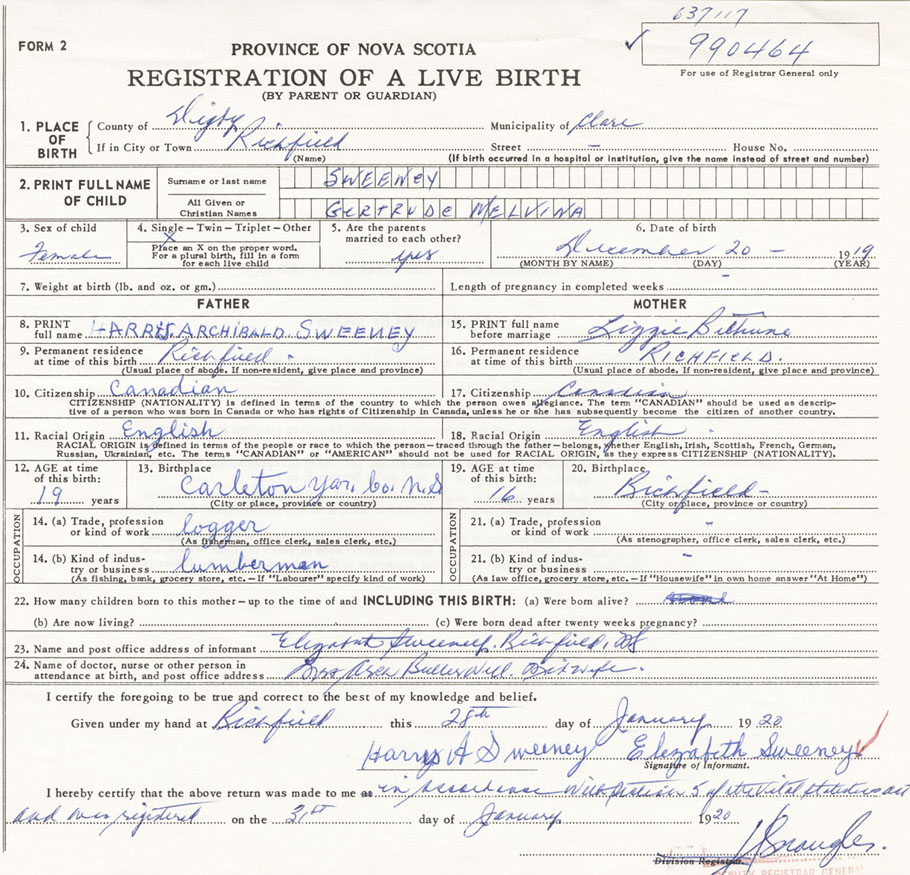 637117
FORM 2
PROVINCE OF NOVA SCOTIA
990464
REGISTRATION OF A LIVE BIRTH
For use of Registrar General only
(BY PARENT OR GUARDIAN)
1. PLACE OF BIRTH County of Digby Municipality of Clare
If in City or Town Richfield Street – House No.
(Name) (If birth occurred in a hospital or institution, give the name instead of street and number)
2. PRINT FULL NAME OF CHILD Surname or last name SWEENEY
All Given or Christian Names GERTRUDE MELVINA
3. Sex of child 4. Single – Twin – Triplet – Other 5. Are the parents married to each other? 6. Date of birth
Female X Place an X on the proper word. For a plural birth, fill in a form for each live child yes December 20 – 1919
(MONTH BY NAME) (DAY) (YEAR)
7. Weight at birth (lb. and oz. or gm.) Length of pregnancy in completed weeks –
FATHER MOTHER
8. PRINT full name HARRIS ARCHIBALD SWEENEY 15. PRINT full name before marriage Lizzie Bethune
9. Permanent residence at time of this birth Richfield 16. Permanent residence at time of this birth RICHFIELD.
(Usual place of abode. If non-resident, give place and province) (Usual place of abode. If non-resident, give place and province)
10. Citizenship Canadian 17. Citizenship Canadian
CITIZENSHIP (NATIONALITY) is defined in terms of the country to which the person owes allegiance. The term "CANADIAN" should be used as descrip-
tive of a person who was born in Canada or who has rights of Citizenship in Canada, unless he or she has subsequently become the citizen of another country.
11. Racial Origin English 18. Racial Origin English
RACIAL ORIGIN is defined in terms of the people or race to which the person – traced through the father – belongs, whether English, Irish, Scottish, French, German,
Russian, Ukrainian, etc. The terms "CANADIAN" or "AMERICAN" should not be used for RACIAL ORIGIN, as they express CITIZENSHIP (NATIONALITY).
12. AGE at time of this birth: 13. Birthplace 19. AGE at time of this birth: 20. Birthplace
19 years Carleton Yar. Co. N.S 16 years Richfield –
(City or place, province or country) (City or place, province or country)
OCCUPATION 14. (a) Trade, profession or kind of work logger OCCUPATION 21. (a) Trade, profession or kind of work –
(As fisherman, office clerk, sales clerk, etc.) (As stenographer, office clerk, sales clerk, etc.)
14. (b) Kind of indus- try or business lumberman 21. (b) Kind of indus- try or business –
(As fishing, bank, grocery store, etc. – If "Labourer" specify kind of work) (As law office, grocery store, etc. – If "Housewife" in own home answer "At Home")
22. How many children born to this mother – up to the time of and INCLUDING THIS BIRTH: (a) Were born alive?
(b) Are now living? (c) Were born dead after twenty weeks pregnancy?
23. Name and post office address of informant Elizabeth Sweeney, Richfield, NS
24. Name of doctor, nurse or other person in attendance at birth, and post office address Midwife.
I certify the foregoing to be true and correct to the best of my knowledge and belief.
Given under my hand at Richfield this 28th day of January 1920
Harry A Sweeney Elizabeth Sweeney
Signature of Informant.
I hereby certify that the above return was made to me at in accordance with section 5 of the Vital Statistics act
and was registered on the 31st day of January 1920
Division Registrar.
DEPUTY REGISTRAR GENERAL